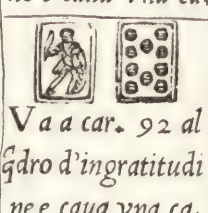 Va a car. 92 al
q̃dro d'ingratitudi
ne e caua vna ca.